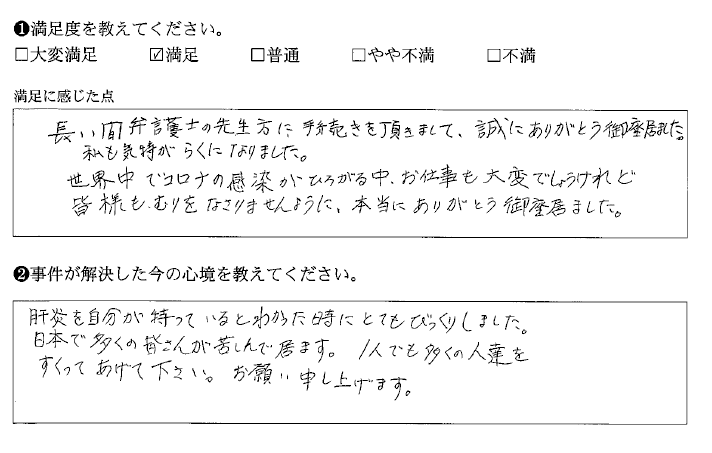 ❶満足度を教えてください。
□大変満足 ☑満足 □普通 □やや不満 □不満
満足に感じた点
長い間弁護士の先生方に手続きを頂きまして、誠にありがとう御座居ました。
私も気持がらくになりました。
世界中でコロナの感染がひろがる中、お仕事も大変でしょうけれど
皆様も、むりをなさりませんように、本当にありがとう御座居ました。
❷事件が解決した今の心境を教えてください。
肝炎を自分が持っているとわかった時にとてもびっくりしました。
日本で多くの皆さんが苦しんで居ます。1人でも多くの人達を
すくってあげて下さい。お願い申し上げます。